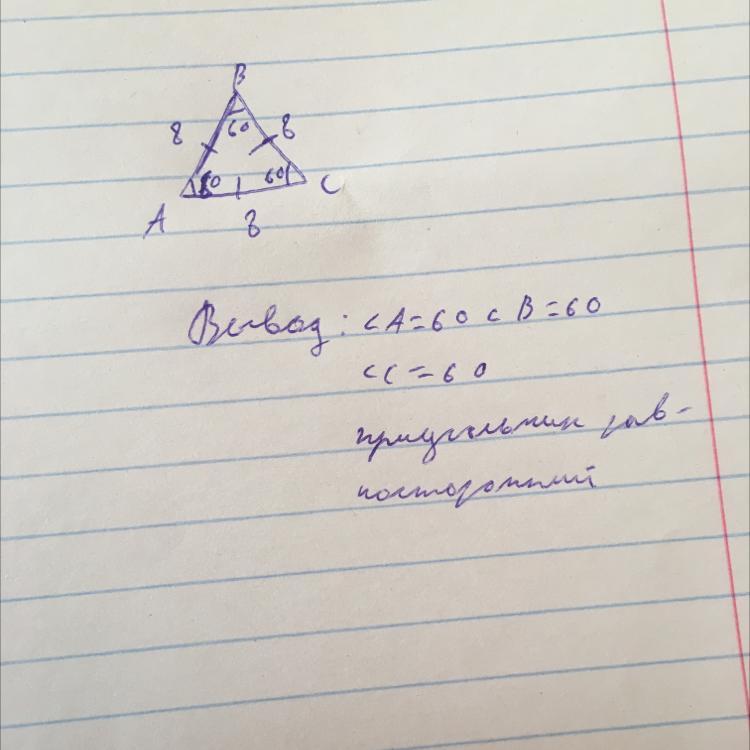 B
8 60 8
60 60 C
A 8
Вывод: <A=60 <B=60
<C=60
триугольник рав-
носторонний